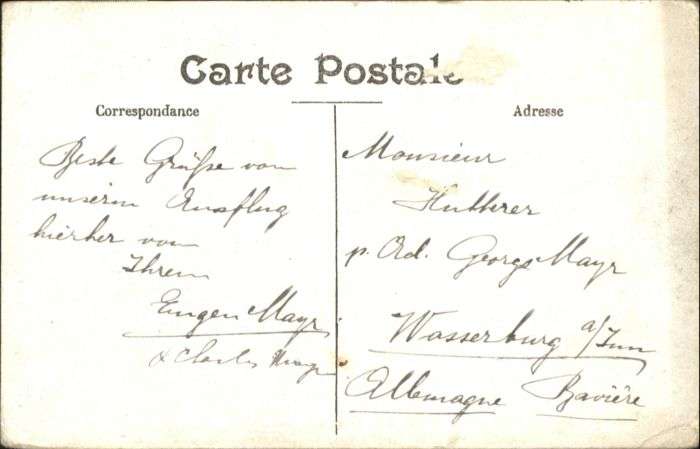 Carte Postale
Correspondance
Beste Grüße von
unserm Ausflug
hierher von
Ihrem
Eugen Mayr
& Charles
Adresse
Monsieur
Hutterer
p. Ad. Georg Mayr
Wasserburg a/Inn
Allemagne Bavière